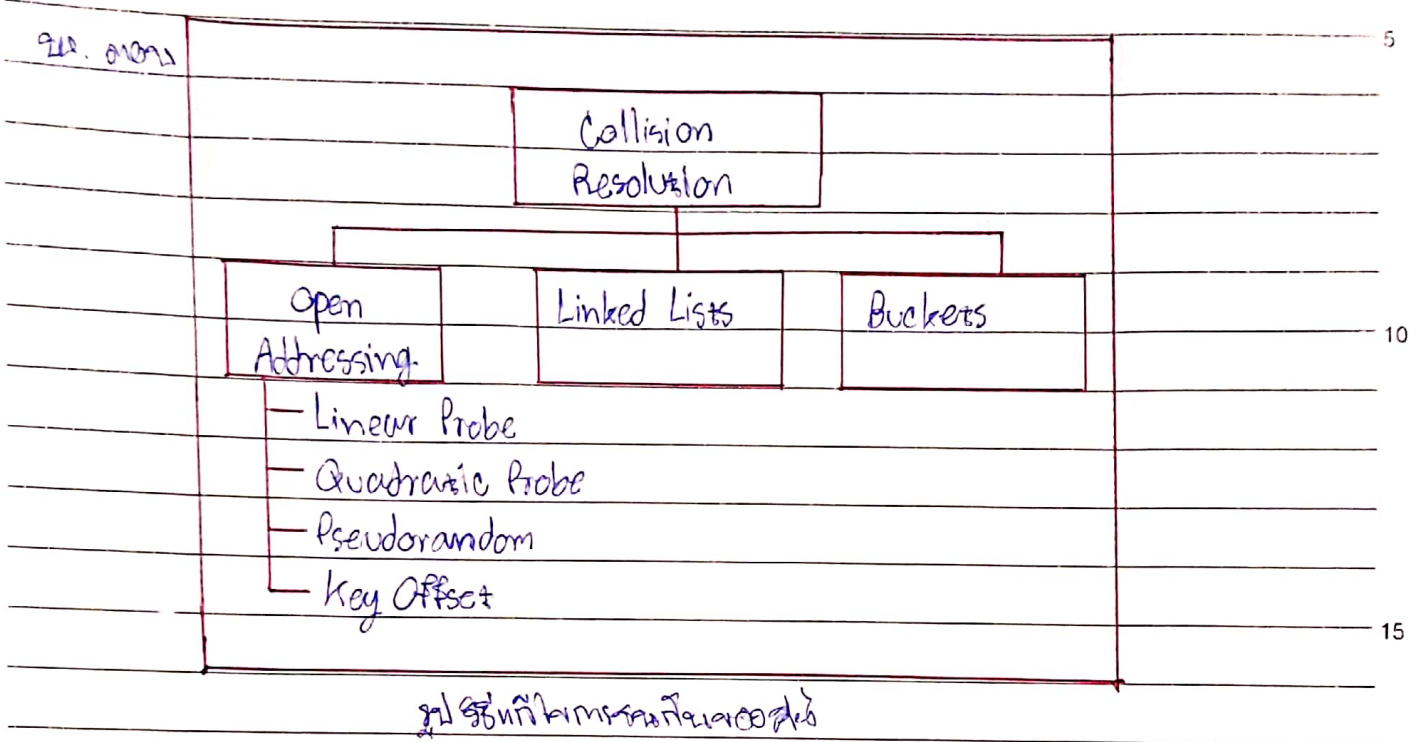 5
Collision
Resolution
Open
Addressing.
Linked Lists
Buckets
10
Linear Probe
Quadratic Probe
Pseudorandom
Key Offset
15
รูป วิธีแก้ไขการชนกันของ